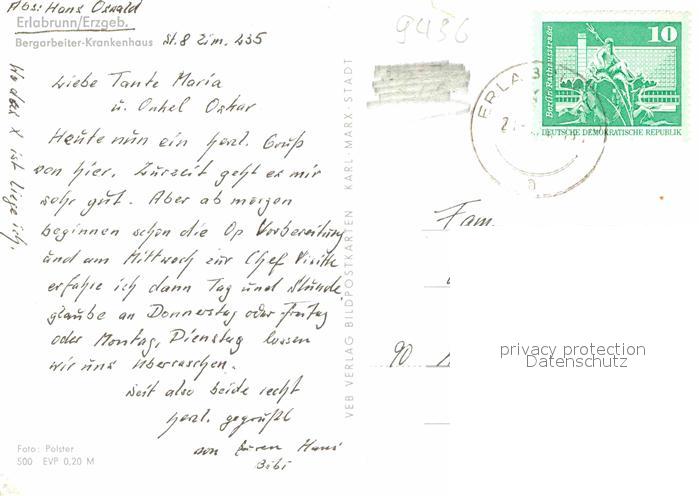 Abs: Hans Oswald
Erlabrunn/Erzgeb.
Bergarbeiter-Krankenhaus St. 8 Zim. 235
Wo das X ist liege ich.
Liebe Tante Maria
u. Onkel Oskar
Heute nun ein herzl. Gruß
von hier. Zurzeit geht es mir
sehr gut. Aber ab morgen
beginnen schon die Op Vorbereitung
und am Mittwoch zur Chef Visitte
erfahre ich dann Tag und Stunde,
glaube an Donnerstag oder Freitag
oder Montag, Dienstag lassen
wir uns überraschen.
Seit also beide recht
herzl. gegrüßt
von Euren Hans
Foto: Polster
500 EVP 0,20 M
VEB VERLAG BILDPOSTKARTEN KARL-MARX-STADT
9436
10
Berlin, Rathausstraße
DEUTSCHE DEMOKRATISCHE REPUBLIK
ERLAB
a
Fam.
90
privacy protection
Datenschutz